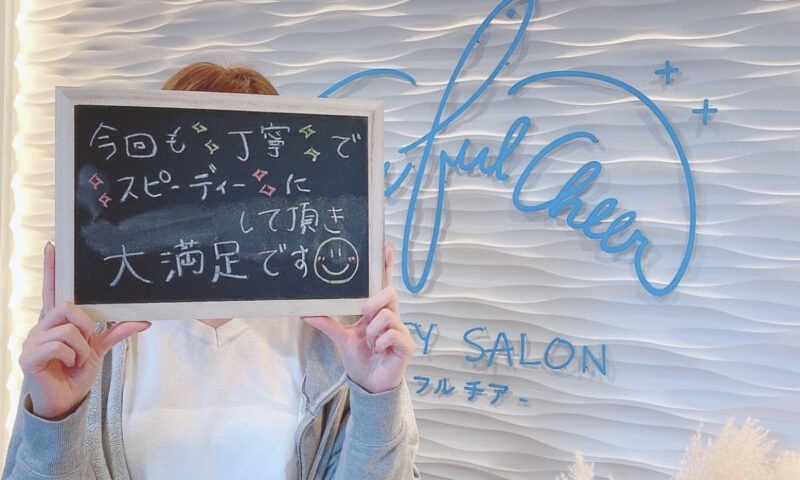 今回も 丁寧 で
スピーディー に
して頂き
大満足です
ful Cheer
SALON
フルチアー